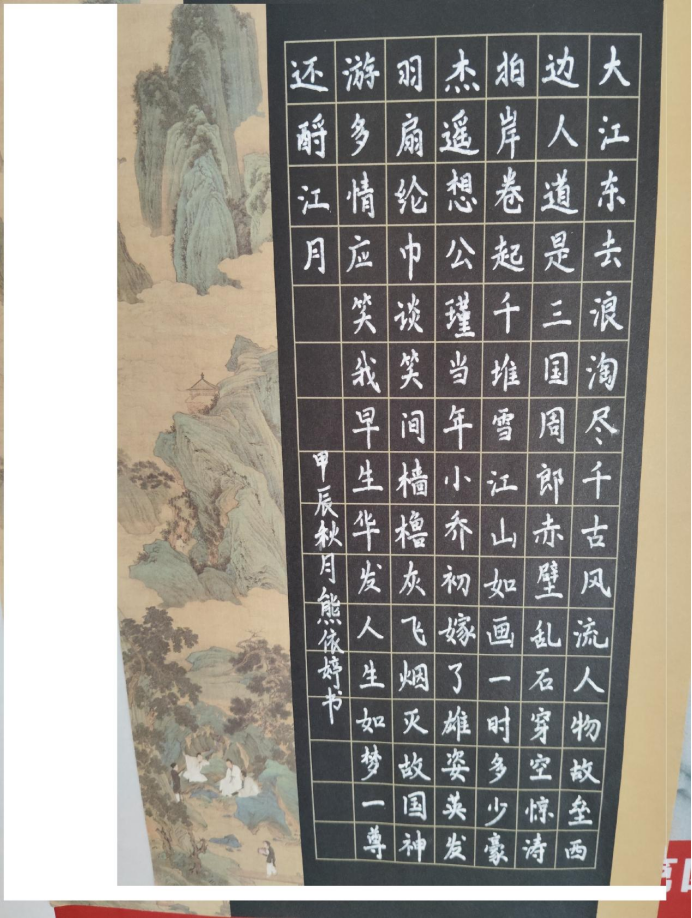 大江东去浪淘尽千古风流人物故垒西
边人道是三国周郎赤壁乱石穿空惊涛
拍岸卷起千堆雪江山如画一时多少豪
杰遥想公瑾当年小乔初嫁了雄姿英发
羽扇纶巾谈笑间樯橹灰飞烟灭故国神
游多情应笑我早生华发人生如梦一尊
还酹江月
甲辰秋月熊依婷书